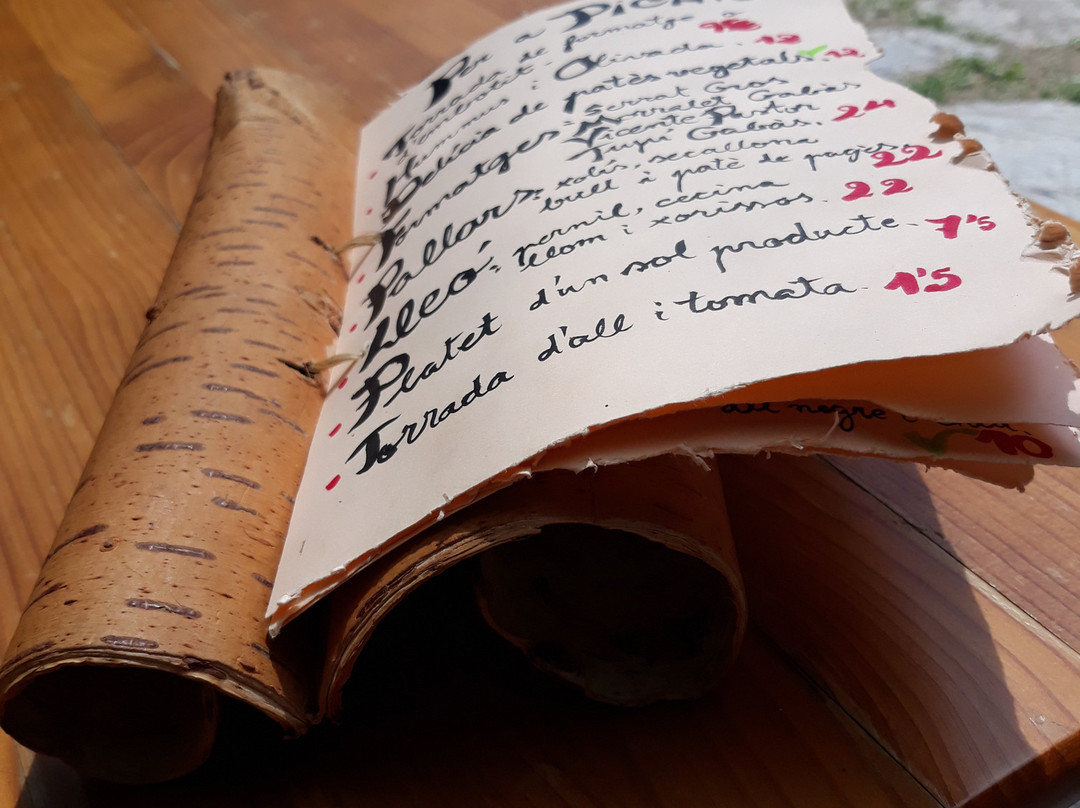 Per a Picar
Torrada de formatge
d'embotit. 16
Hummus i Olivada. 12
Delícia de patès vegetals. 12
Formatges: Serrat Gros
Morralet Gabàs
Vicente Pastor
Tupí Gabàs. 24
Pallars: xolís, secallona
bull i patè de pagès. 22
Lleó: pernil, cecina
llom i xorissos. 22
Platet d'un sol producte. 7'5
Torrada d'all i tomata. 1'5
all negre i
10